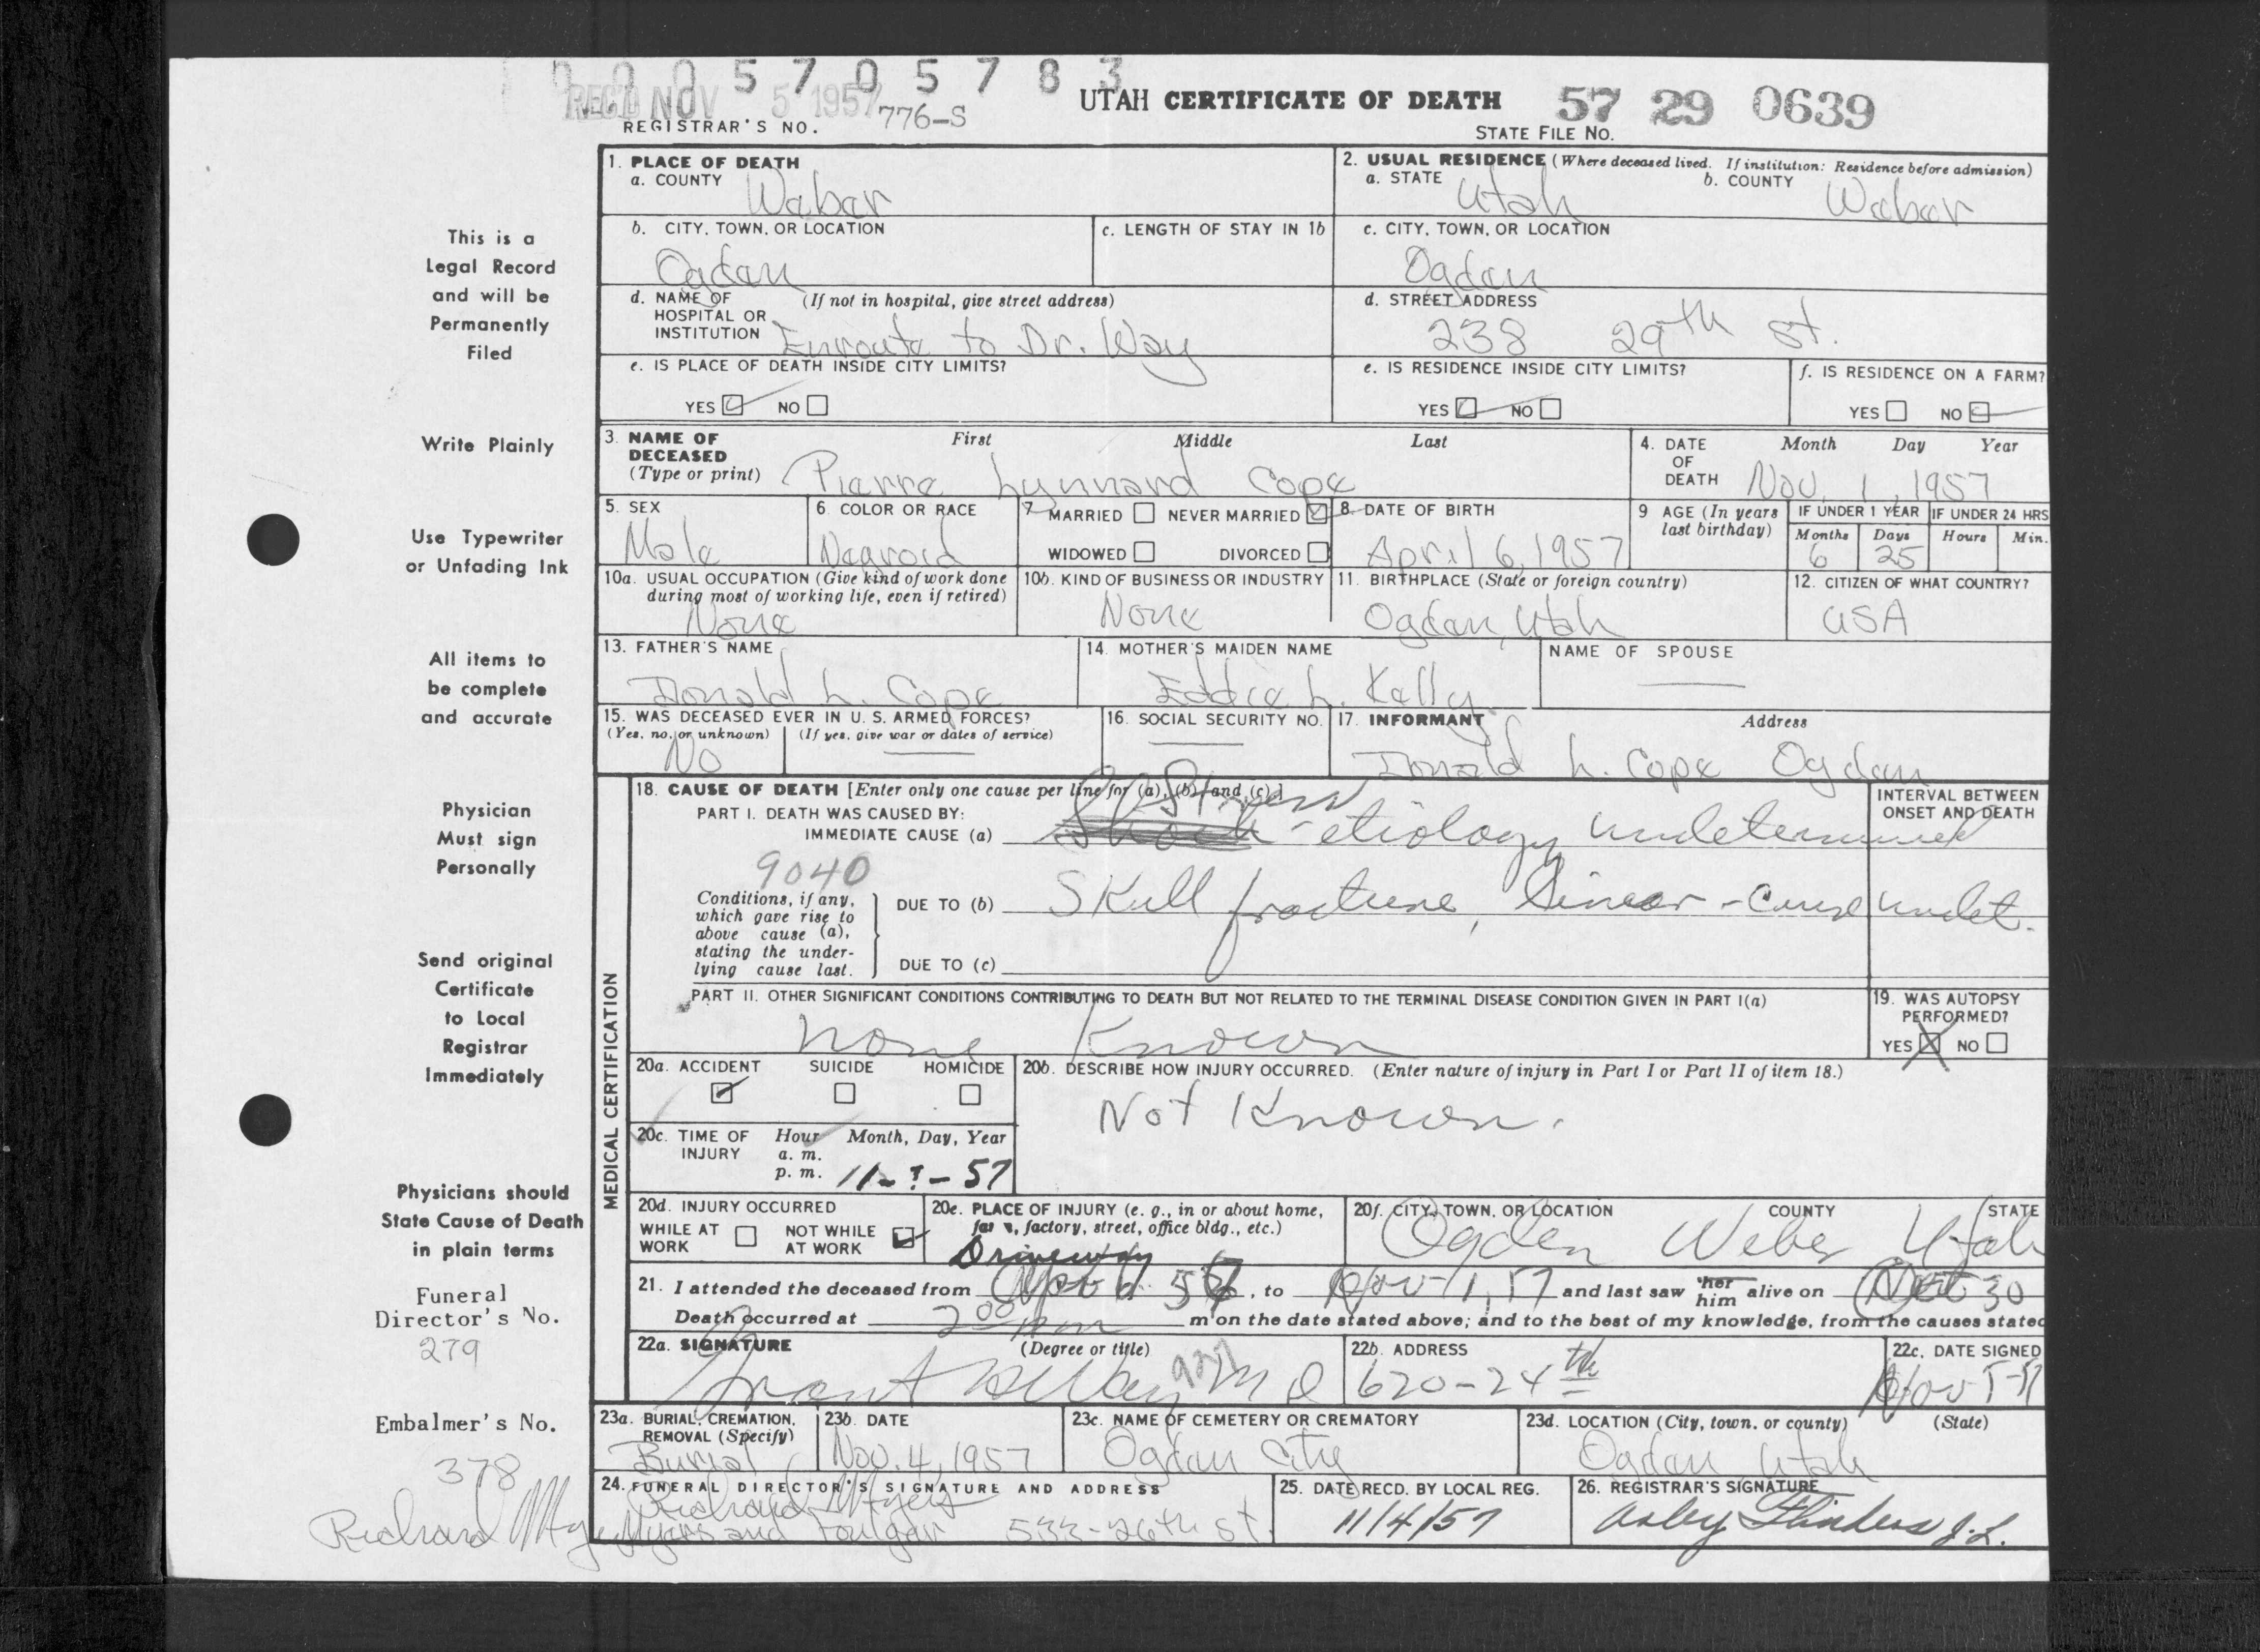 0 0 0 5 7 0 5 7 8 3
REC'D NOV 5 1957
776-S
REGISTRAR'S NO.
UTAH CERTIFICATE OF DEATH
57 29 0639
STATE FILE NO.
This is a
Legal Record
and will be
Permanently
Filed
Write Plainly
Use Typewriter
or Unfading Ink
All items to
be complete
and accurate
Physician
Must sign
Personally
Send original
Certificate
to Local
Registrar
Immediately
Physicians should
State Cause of Death
in plain terms
Funeral
Director's No.
279
Embalmer's No.
378
Richard
1. PLACE OF DEATH
a. COUNTY Weber
2. USUAL RESIDENCE (Where deceased lived. If institution: Residence before admission)
a. STATE Utah b. COUNTY Weber
b. CITY, TOWN, OR LOCATION Ogden
c. LENGTH OF STAY IN 1b
c. CITY, TOWN, OR LOCATION Ogden
d. NAME OF HOSPITAL OR INSTITUTION (If not in hospital, give street address) Enroute to Dr. Way
d. STREET ADDRESS 238 29th St.
e. IS PLACE OF DEATH INSIDE CITY LIMITS?
YES NO
e. IS RESIDENCE INSIDE CITY LIMITS?
YES NO
f. IS RESIDENCE ON A FARM?
YES NO
3. NAME OF DECEASED (Type or print) First Middle Last
Pierre Lynnard Cope
4. DATE OF DEATH Month Day Year
Nov. 1, 1957
5. SEX Male
6. COLOR OR RACE Negroid
7. MARRIED NEVER MARRIED
WIDOWED DIVORCED
8. DATE OF BIRTH April 6, 1957
9 AGE (In years last birthday)
IF UNDER 1 YEAR Months 6 Days 25
IF UNDER 24 HRS Hours Min.
10a. USUAL OCCUPATION (Give kind of work done during most of working life, even if retired) None
10b. KIND OF BUSINESS OR INDUSTRY None
11. BIRTHPLACE (State or foreign country) Ogden, Utah
12. CITIZEN OF WHAT COUNTRY? USA
13. FATHER'S NAME Donald L. Cope
14. MOTHER'S MAIDEN NAME Eddie L. Kelly
NAME OF SPOUSE
15. WAS DECEASED EVER IN U. S. ARMED FORCES?
(Yes, no, or unknown) (If yes, give war or dates of service)
No
16. SOCIAL SECURITY NO.
17. INFORMANT Address
Donald L. Cope Ogden
MEDICAL CERTIFICATION
18. CAUSE OF DEATH [Enter only one cause per line for (a), (b) and (c).]
PART I. DEATH WAS CAUSED BY:
IMMEDIATE CAUSE (a) - etiology undetermined
INTERVAL BETWEEN ONSET AND DEATH
9040
Conditions, if any, which gave rise to above cause (a), stating the underlying cause last.
DUE TO (b) Skull fracture, linear - cause undet.
DUE TO (c)
PART II. OTHER SIGNIFICANT CONDITIONS CONTRIBUTING TO DEATH BUT NOT RELATED TO THE TERMINAL DISEASE CONDITION GIVEN IN PART I(a)
None Known
19. WAS AUTOPSY PERFORMED?
YES NO
20a. ACCIDENT SUICIDE HOMICIDE
20b. DESCRIBE HOW INJURY OCCURRED. (Enter nature of injury in Part I or Part II of item 18.)
Not Known.
20c. TIME OF INJURY Hour Month, Day, Year
a. m.
p. m. 11-?-57
20d. INJURY OCCURRED
WHILE AT WORK NOT WHILE AT WORK
20e. PLACE OF INJURY (e. g., in or about home, farm, factory, street, office bldg., etc.)
Driveway
20f. CITY, TOWN, OR LOCATION COUNTY STATE
Ogden Weber Utah
21. I attended the deceased from Apr 6 57, to Nov 1, 57 and last saw her him alive on Oct 30
Death occurred at 2 00 m on the date stated above; and to the best of my knowledge, from the causes stated
22a. SIGNATURE (Degree or title)
Grant Way M D
22b. ADDRESS
620-24th
22c. DATE SIGNED
Nov 5-57
23a. BURIAL, CREMATION, REMOVAL (Specify) Burial
23b. DATE Nov. 4, 1957
23c. NAME OF CEMETERY OR CREMATORY Ogden City
23d. LOCATION (City, town, or county) (State)
Ogden Utah
24. FUNERAL DIRECTOR'S SIGNATURE AND ADDRESS
Richard Myers
Myers and Foulger 533-26th St.
25. DATE RECD. BY LOCAL REG.
11/4/57
26. REGISTRAR'S SIGNATURE
Flinders J.L.